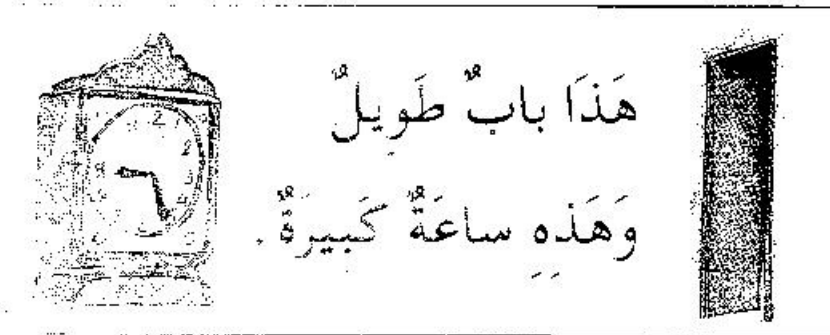 هَذَا بابٌ طَوِيلٌ
وَهَذِهِ ساعَةٌ كَبِيرَةٌ .